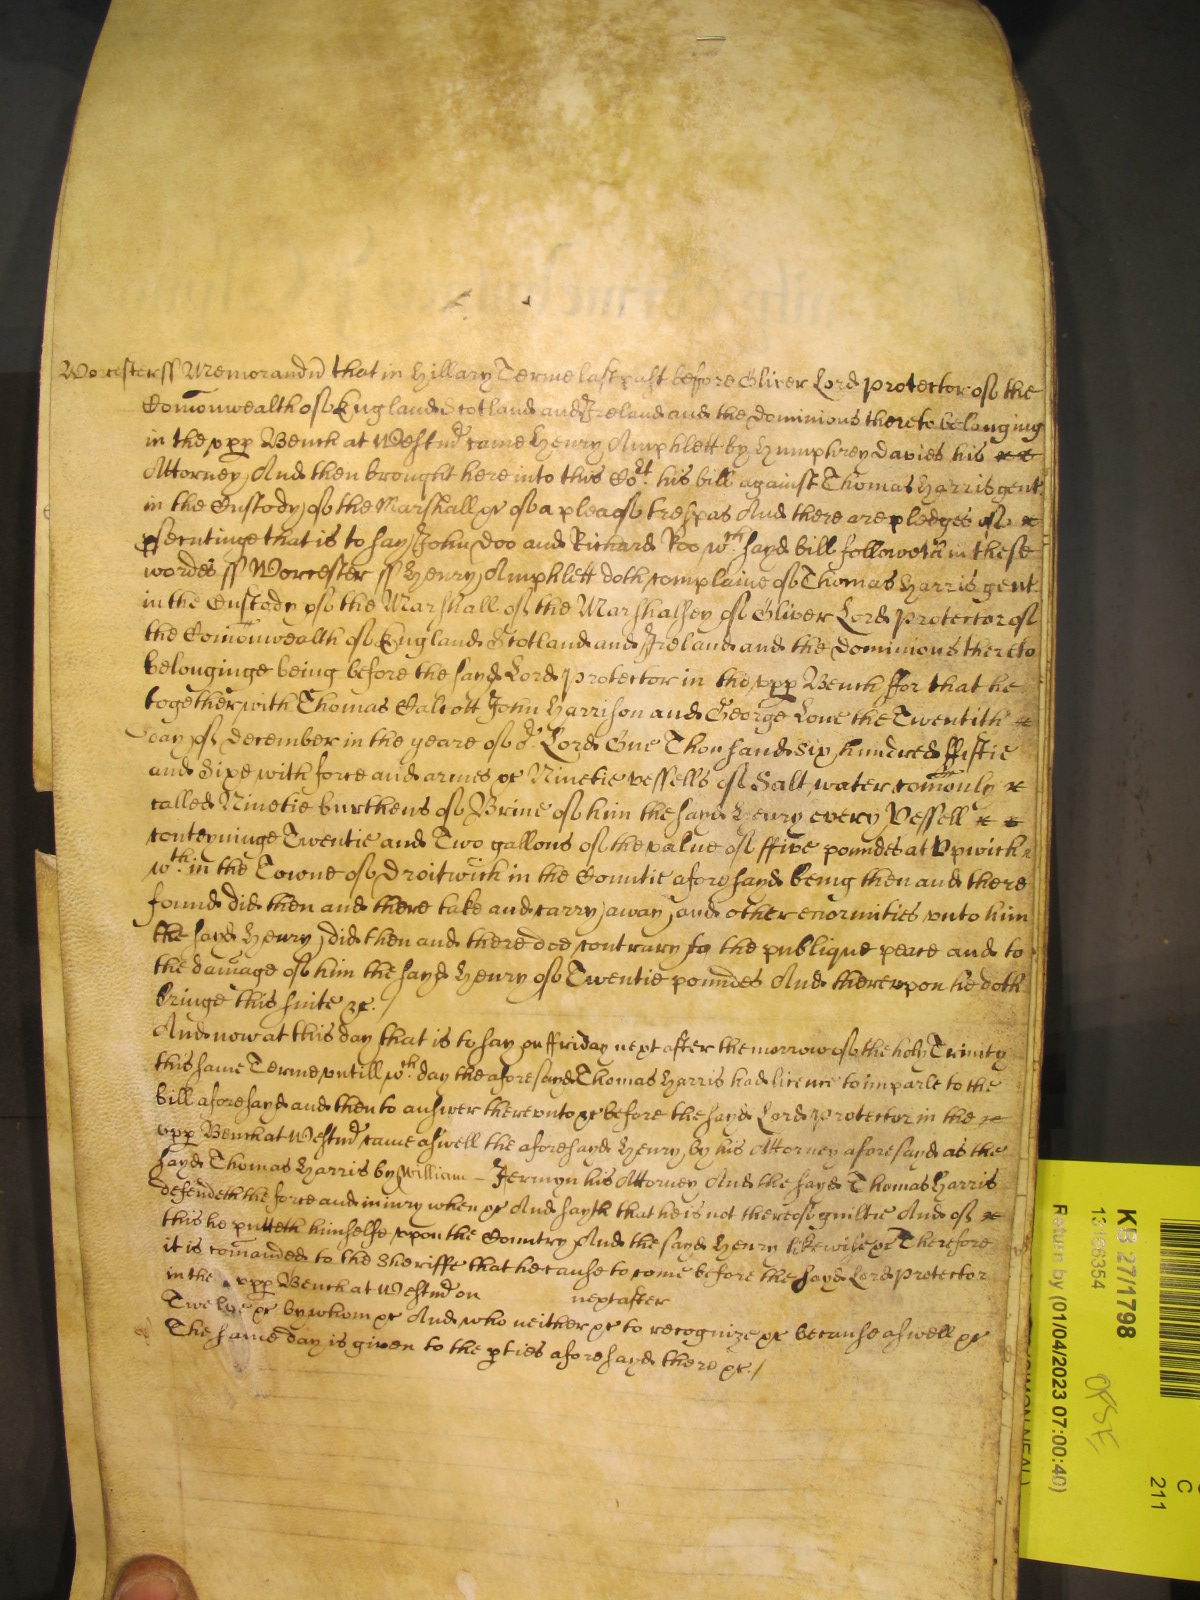 Worcester ss Memorand that in Hillary Terme last past before Oliver Lord Protector of the
Comonwealth of England Scotland and Ireland and the Dominions thereto belonging
in the upp Bench at Westmr came Henry Amphlett by Humphrey Davies his
Attorney And then brought here into this Cort his bill against Thomas Harris gent
in the Custody of the Marshall &c of a plea of trespas And there are pledges of
psecutinge that is to say John Doo and Richard Roo wch sayd bill followeth in these
wordes ss Worcester ss Henry Amphlett doth complaine of Thomas Harris gent
in the Custody of the Marshall of the Marshalsey of Oliver Lord Protector of
the Comonwealth of England Scotland and Ireland and the Dominions thereto
belonginge being before the sayd Lord Protector in the upp Bench ffor that he
together with Thomas Calcott John Harrison and George Lone the Twentith
day of December in the yeare of or Lord One Thousand six hundred ffiftie
and Sixe with force and armes &c Ninetie vessells of Salt water comonly
called Ninetie burthens of Brine of him the sayd Henry every Vessell
conteyninge Twentie and Two gallons of the value of ffive poundes at Upwich
wth in the Towne of Droitwich in the Countie aforesayd being then and there
found did then and there take and carry away and other enormities unto him
the sayd Henry did then and there doe contrary to the publique peace and to
the damage of him the sayd Henry of Twentie poundes And thereupon he doth
bringe this suite &c. /
And now at this day that is to say on ffriday next after the morrow of the holy Trinity
this same Terme untill wch day the aforesayd Thomas Harris had licence to imparle to the
bill aforesayd and then to answer thereunto &c before the sayd Lord Protector in the
upp Bench at Westmr came aswell the aforesayd Henry by his Attorney aforesayd as the
sayd Thomas Harris by William - Jermyn his Attorney And the sayd Thomas Harris
defendeth the force and iniury when &c And sayth that he is not thereof guiltie And of
this he putteth himselfe upon the Country And the sayd Henry likewise &c Therefore
it is comanded to the Sheriffe that he cause to come before the sayd Lord Protector
in the upp Bench at Westmr on next after
Twelve &c by whom &c And who neither &c to recognize &c because aswell &c
The same day is given to the pties aforesayd there &c. /
KB 27/1798
Return by (01/04/2023 07:00:40)
C
211